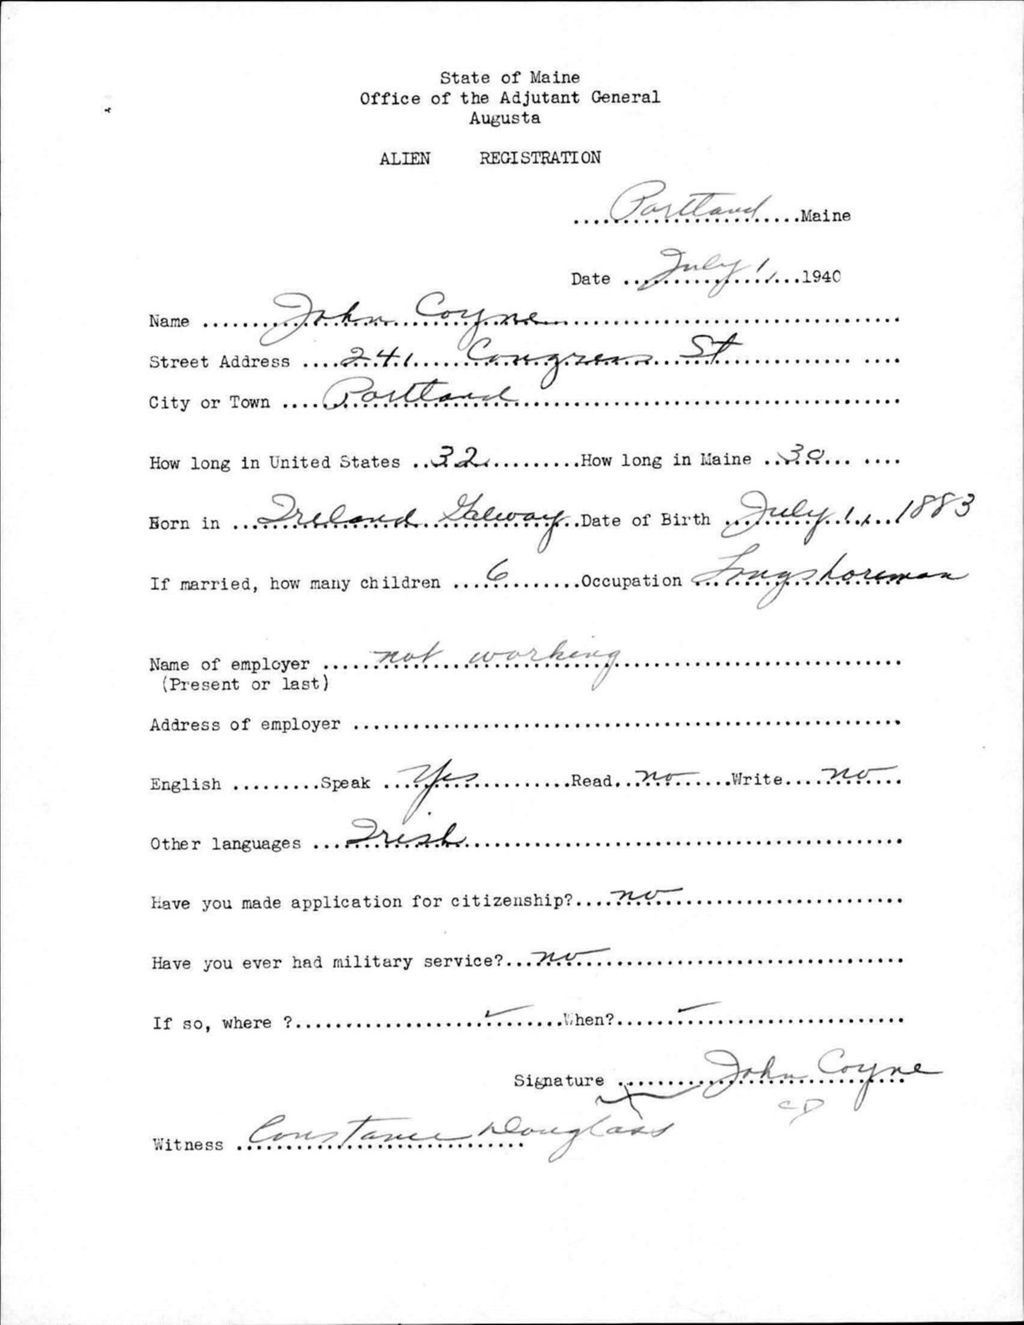 State of Maine
Office of the Adjutant General
Augusta
ALIEN REGISTRATION
Portland Maine
Date July 1, 1940
Name John Coyne
Street Address 241 Congress St
City or Town Portland
How long in United States 32 How long in Maine 30
Born in Ireland Galway Date of Birth July 1, 1883
If married, how many children 6 Occupation Longshoreman
Name of employer not working
(Present or last)
Address of employer
English Speak Yes Read no Write no
Other languages Irish
Have you made application for citizenship? no
Have you ever had military service? no
If so, where ? ✓ When? ✓
Signature X John Coyne
CD
Witness Constance Douglass